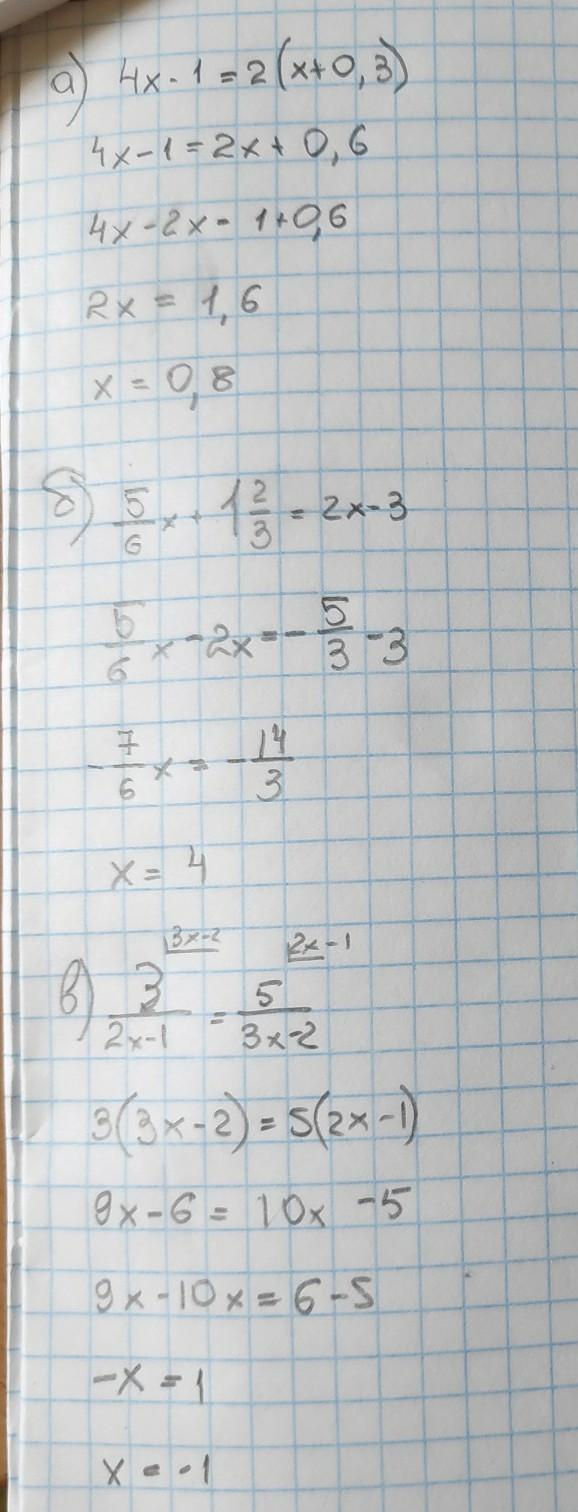 а) 4x - 1 = 2(x+0,3)
4x - 1 = 2x + 0,6
4x - 2x - 1+0,6
2x = 1,6
x = 0,8
б) 5/6 x + 1 2/3 = 2x - 3
5/6 x - 2x = - 5/3 - 3
- 7/6 x = - 14/3
x = 4
3x-2 2x-1
в) 3/(2x-1) = 5/(3x-2)
3(3x-2) = 5(2x-1)
9x - 6 = 10x - 5
9x - 10x = 6 - 5
-x = 1
x = -1